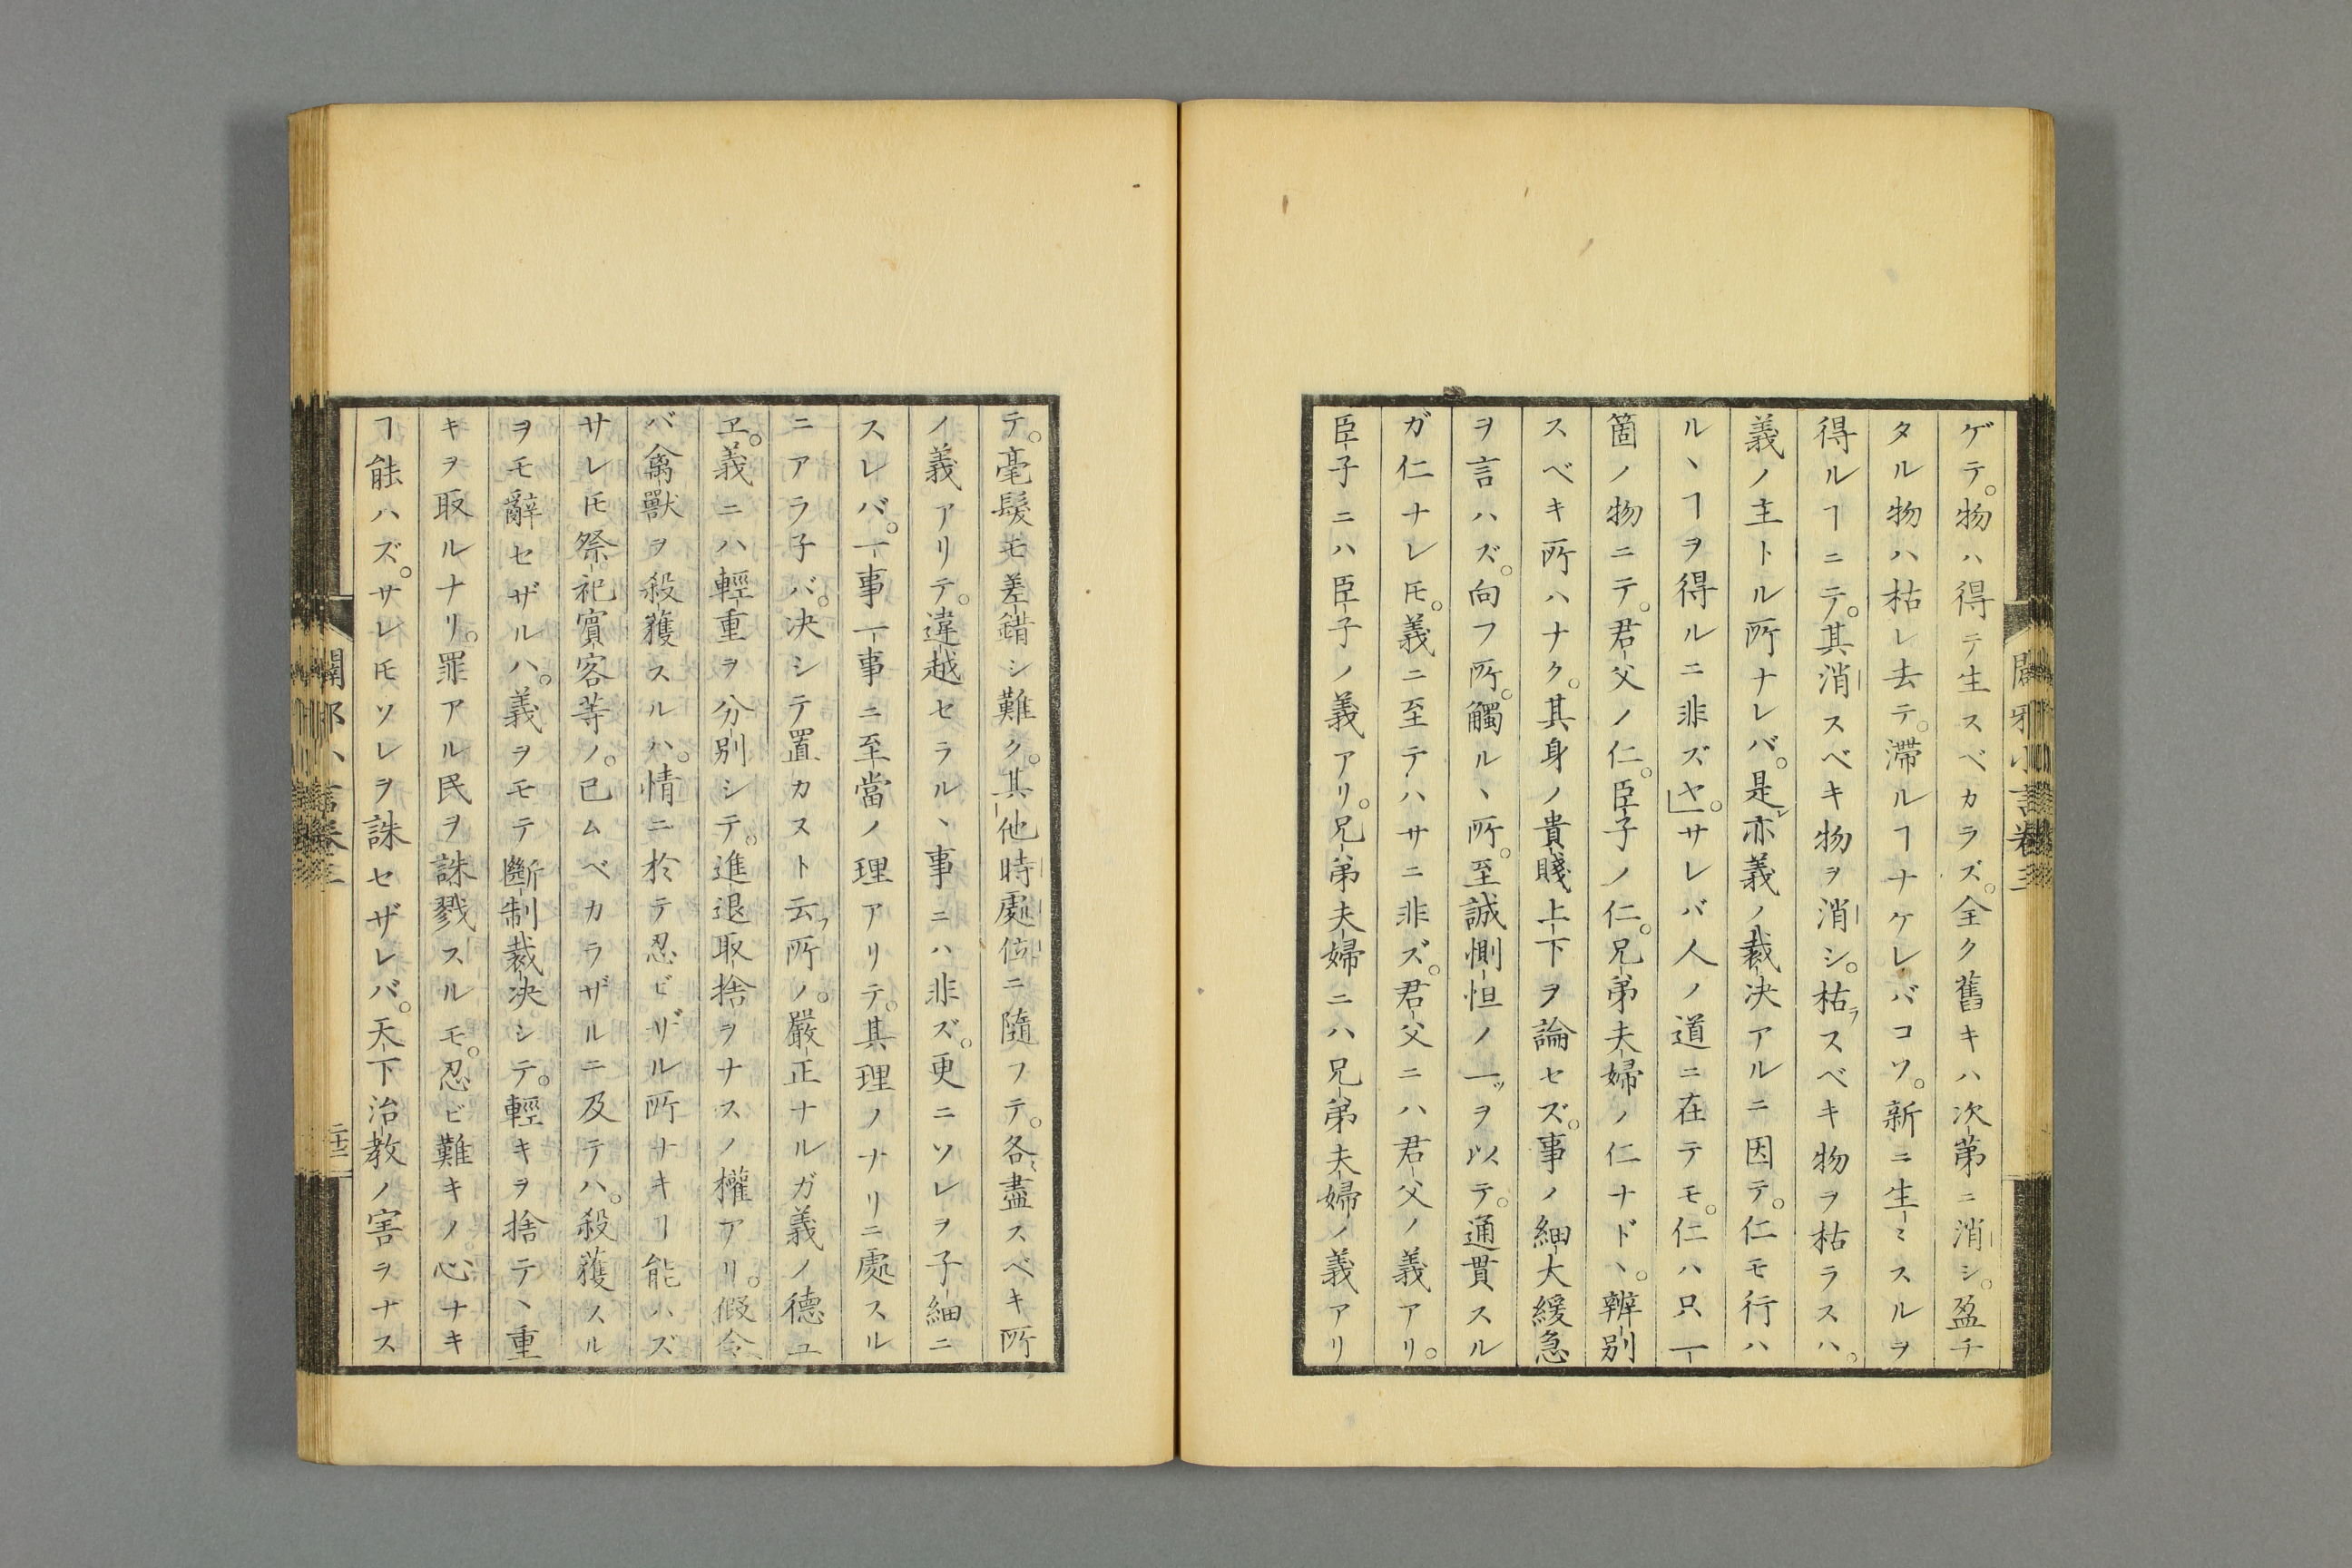 ゲテ。物ハ得テ生スベカラズ。全ク舊キハ次第ニ消シ。盈チ
タル物ハ枯レ去テ。滯ルヿナケレバコソ。新ニ生ミスルヲ
得ルヿニテ。其消スベキ物ヲ消シ。枯ラスベキ物ヲ枯ラスハ。
義ノ主トル所ナレバ。是レ亦義ノ裁決アルニ因テ。仁モ行ハ
ルヽヿヲ得ルニ非ズヤ。サレバ人ノ道ニ在テモ。仁ハ只一
箇ノ物ニテ。君父ノ仁。臣子ノ仁。兄弟夫婦ノ仁ナドヽ。辨別
スベキ所ハナク。其身ノ貴賤上下ヲ論セズ。事ノ細大緩急
ヲ言ハズ。向フ所。觸ルヽ所。至誠惻怛ノ一ツヲ以テ。通貫スル
ガ仁ナレ𪜈。義ニ至テハサニ非ズ。君父ニハ君父ノ義アリ。
臣子ニハ臣子ノ義アリ。兄弟夫婦ニハ兄弟夫婦ノ義アリ
闢邪小言卷三
テ。毫髮モ差錯シ難ク。其他時處位ニ隨フテ。各〻盡スベキ所
ノ義アリテ。違越セラルヽ事ニハ非ズ。更ニソレヲ子細ニ
スレバ。一事一事ニ至當ノ理アリテ。其理ノナリニ處スル
ニアラ子バ。决シテ置カスト云フ所ノ。嚴正ナルガ義ノ德ユ
ヱ。義ニハ輕重ヲ分別シテ。進退取捨ヲナスノ權アリ。假令
バ禽獸ヲ殺獲スルハ。情ニ於テ忍ビザル所ナキヿ能ハズ
サレ𪜈祭祀賓客等ノ。已ムベカラザルニ及テハ。殺獲スル
ヲモ辭セザルハ。義ヲモテ斷制裁决シテ。輕キヲ捨テヽ重
キヲ取ルナリ。罪アル民ヲ誅戮スルモ。忍ビ難キノ心ナキ
ヿ能ハズ。サレ𪜈ソレヲ誅セザレバ。天下治教ノ害ヲナス
闢邪小言卷三
二十三